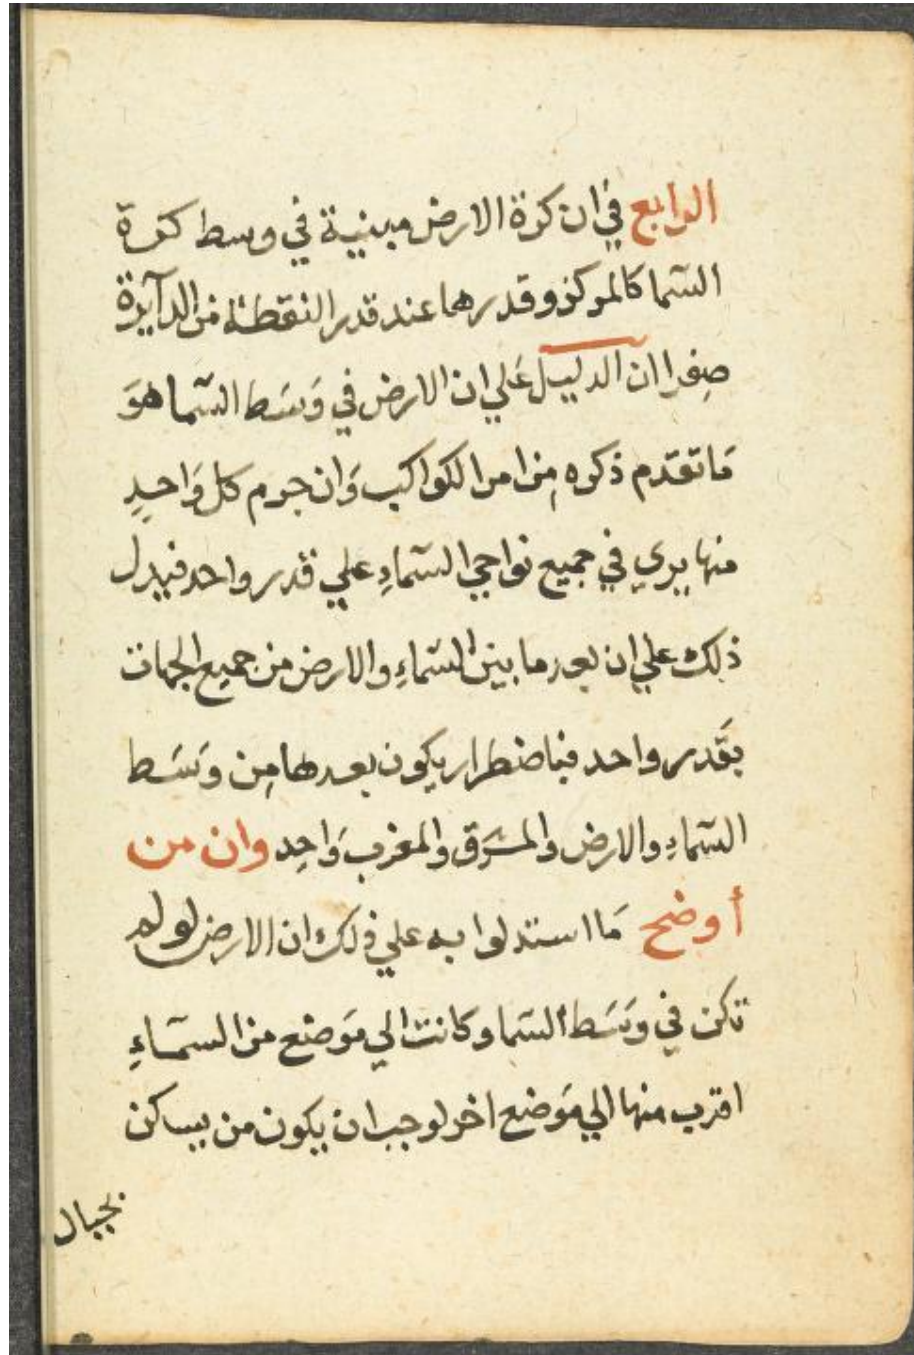 الرابع في ان كرة الارض مبنية في وسط كرة
السما كالمركز وقدرها عند قدر النقطة من الدآيرة
صغرا ان الدليل عَلي ان الارض في وَسَط السّما هوَ
مَا تقدم ذكره من امر الكواكب وَان جرم كل وَاحدٍ
منها يري في جميع نواحي السّماءِ علي قدر واحد فيدل
ذلك علي ان بعد ما بين السّماءِ والارض من جميع الجهات
بقَدر واحد فباضطرار يكون بعدها مِن وسَط
السّماءِ والارض والمشرق والمغرب وَاحِد وان من
أوضح مَا استدلوا به علي ذلك ان الارض لو لم
تكن في وسَط السّما وكانت الي مَوضع من السمآءِ
اقرب منها الي مَوضع اخر لوجب ان يكون من يساكن
بجبال